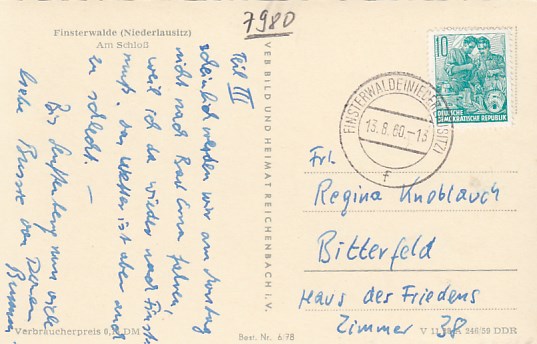 7980
Finsterwalde (Niederlausitz)
Am Schloß
Teil III
scheinlich werden wir am Sonntag
nicht nach Bad Erna fahren,
weil ich da wieder nach Finst.
muß. Das Wetter ist aber auch
zu schlecht. —
Bis Senftenberg nun viele
liebe Küsse von Deinem
VEB BILD UND HEIMAT REICHENBACH I. V.
10
DEUTSCHE
DEMOKRATISCHE REPUBLIK
FINSTERWALDE(NIEDERLAUSITZ)
13.8.60.-13
f
Frl.
Regina Knoblauch
Bitterfeld
Haus des Friedens
Zimmer 38
Verbraucherpreis 0, DM
Best. Nr. 6/78
V 11 A 246/59 DDR